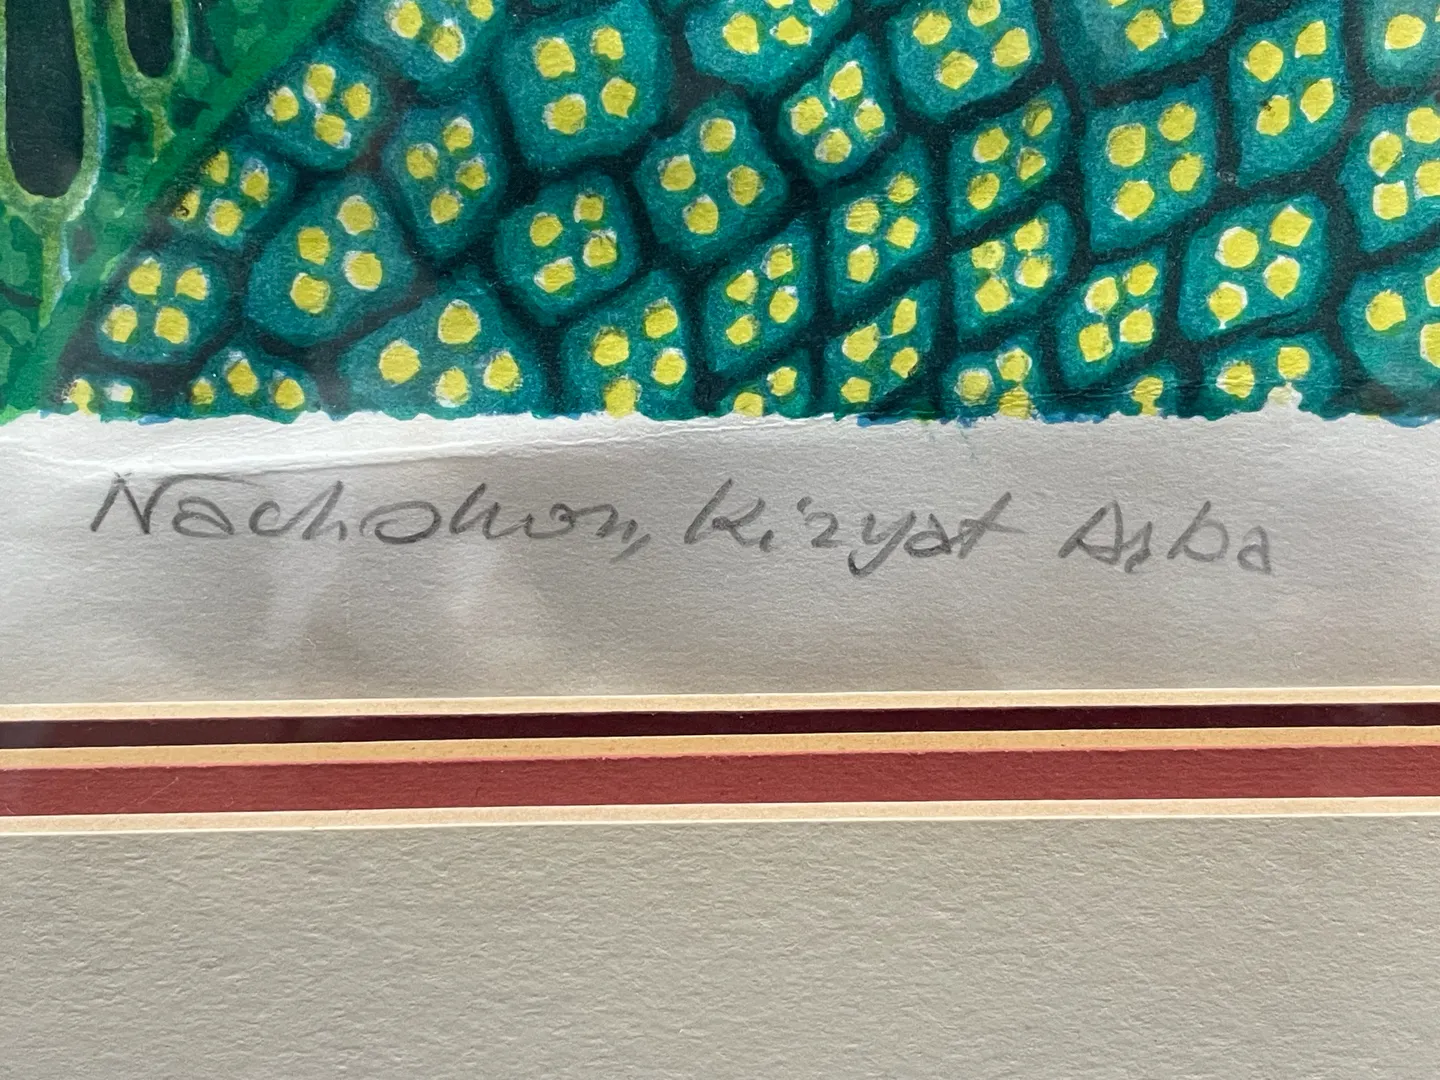 Nachshon, Kiryat Arba